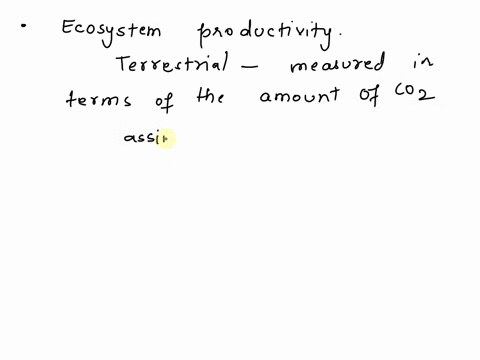 • Ecosystem productivity.
Terrestrial — measured in
terms of the amount of CO2
assi